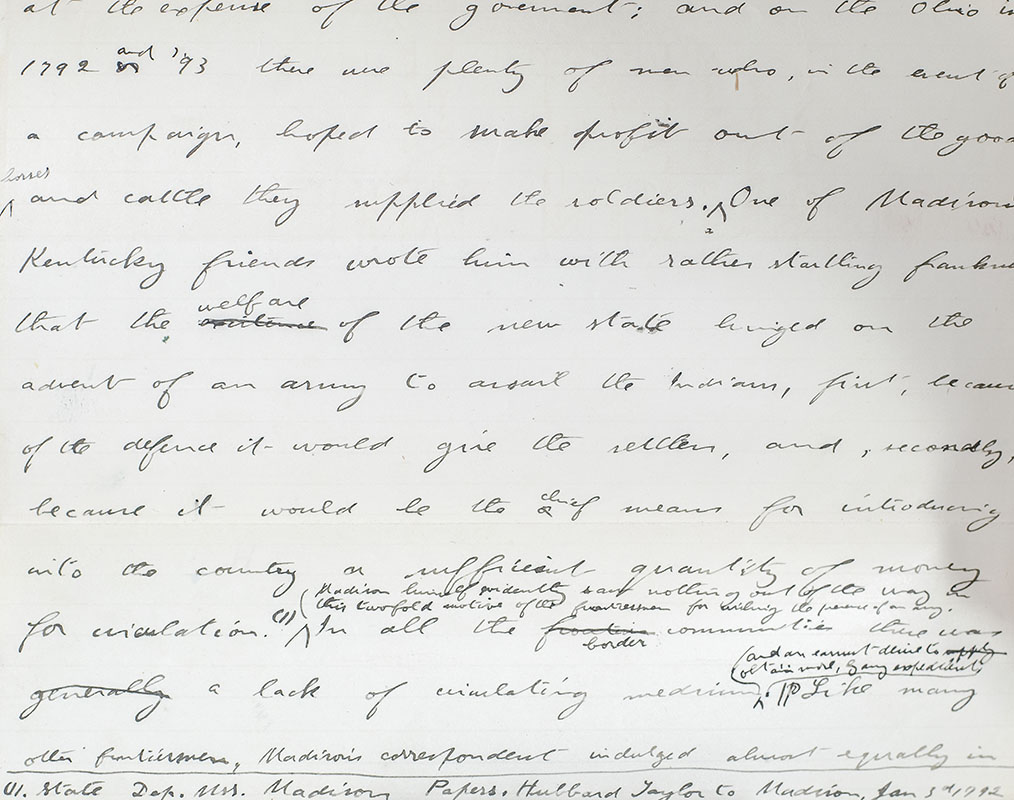 at the expense of the goverment; and on the Ohio in
1792 and '93 there were plenty of men who, in the event of
a campaign, hoped to make profit out of the good
horses
and cattle they supplied the soldiers. One of Madison
Kentucky friends wrote him with rather startling frankne
welfare
that the existence of the new state hinged on the
advent of an army to assail the Indians, first, because
of the defence it would give the settlers, and, secondly,
chief
because it would be the means for introducing
into the country a sufficient quantity of money
Madison himself evidently saw nothing out of the way in
this twofold motive of the frontiersmen for wishing the presence of an army.
for circulation.(1) In all the frontier communities there was
border
and an earnest desire to supply
obtain more, by any expedients
generally a lack of circulating medium. Like many
other frontiersmen, Madison's correspondent indulged almost equally in
(1). State Dep. Mss. Madison Papers. Hubbard Taylor to Madison, Jan 3d, 1792